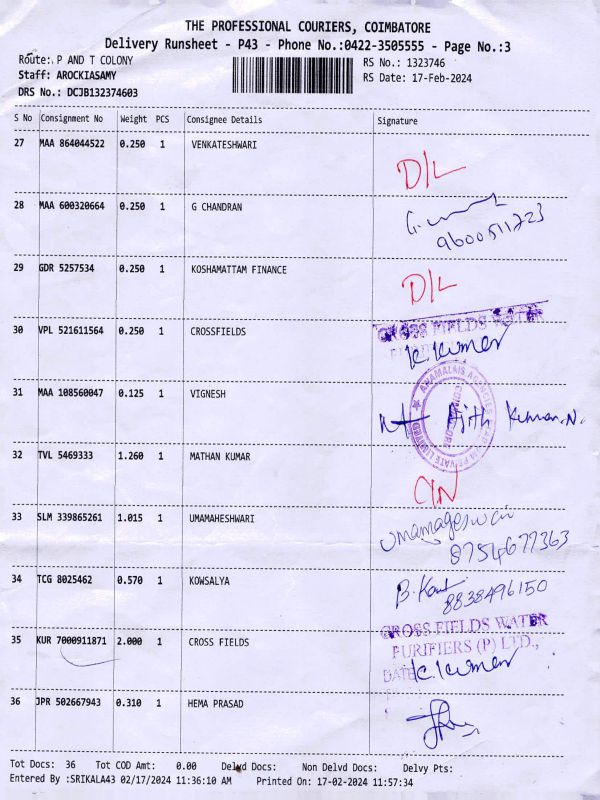 THE PROFESSIONAL COURIERS, COIMBATORE
Delivery Runsheet - P43 - Phone No.:0422-3505555 - Page No.:3
Route: P AND T COLONY
RS No.: 1323746
Staff: AROCKIASAMY
RS Date: 17-Feb-2024
DRS No.: DCJB132374603
S No Consignment No Weight PCS Consignee Details Signature
27 MAA 864044522 0.250 1 VENKATESHWARI
D/L
28 MAA 600320664 0.250 1 G CHANDRAN
9600511723
29 GDR 5257534 0.250 1 KOSHAMATTAM FINANCE
D/L
30 VPL 521611564 0.250 1 CROSSFIELDS
CROSS FIELDS WATER
K.Kumar
31 MAA 108560047 0.125 1 VIGNESH
ANAMALAIS AGENCIES PRIVATE LIMITED
Ajith Kumar.N.
32 TVL 5469333 1.260 1 MATHAN KUMAR
C/N
33 SLM 339865261 1.015 1 UMAMAHESHWARI
Umamageswari
8754677363
34 TCG 8025462 0.570 1 KOWSALYA
8838496150
35 KUR 7000911871 2.000 1 CROSS FIELDS
CROSS FIELDS WATER
PURIFIERS (P) LTD.,
DATE
K.Kumar
36 JPR 502667943 0.310 1 HEMA PRASAD
Tot Docs: 36 Tot COD Amt: 0.00 Delvd Docs: Non Delvd Docs: Delvy Pts:
Entered By :SRIKALA43 02/17/2024 11:36:10 AM Printed On: 17-02-2024 11:57:34